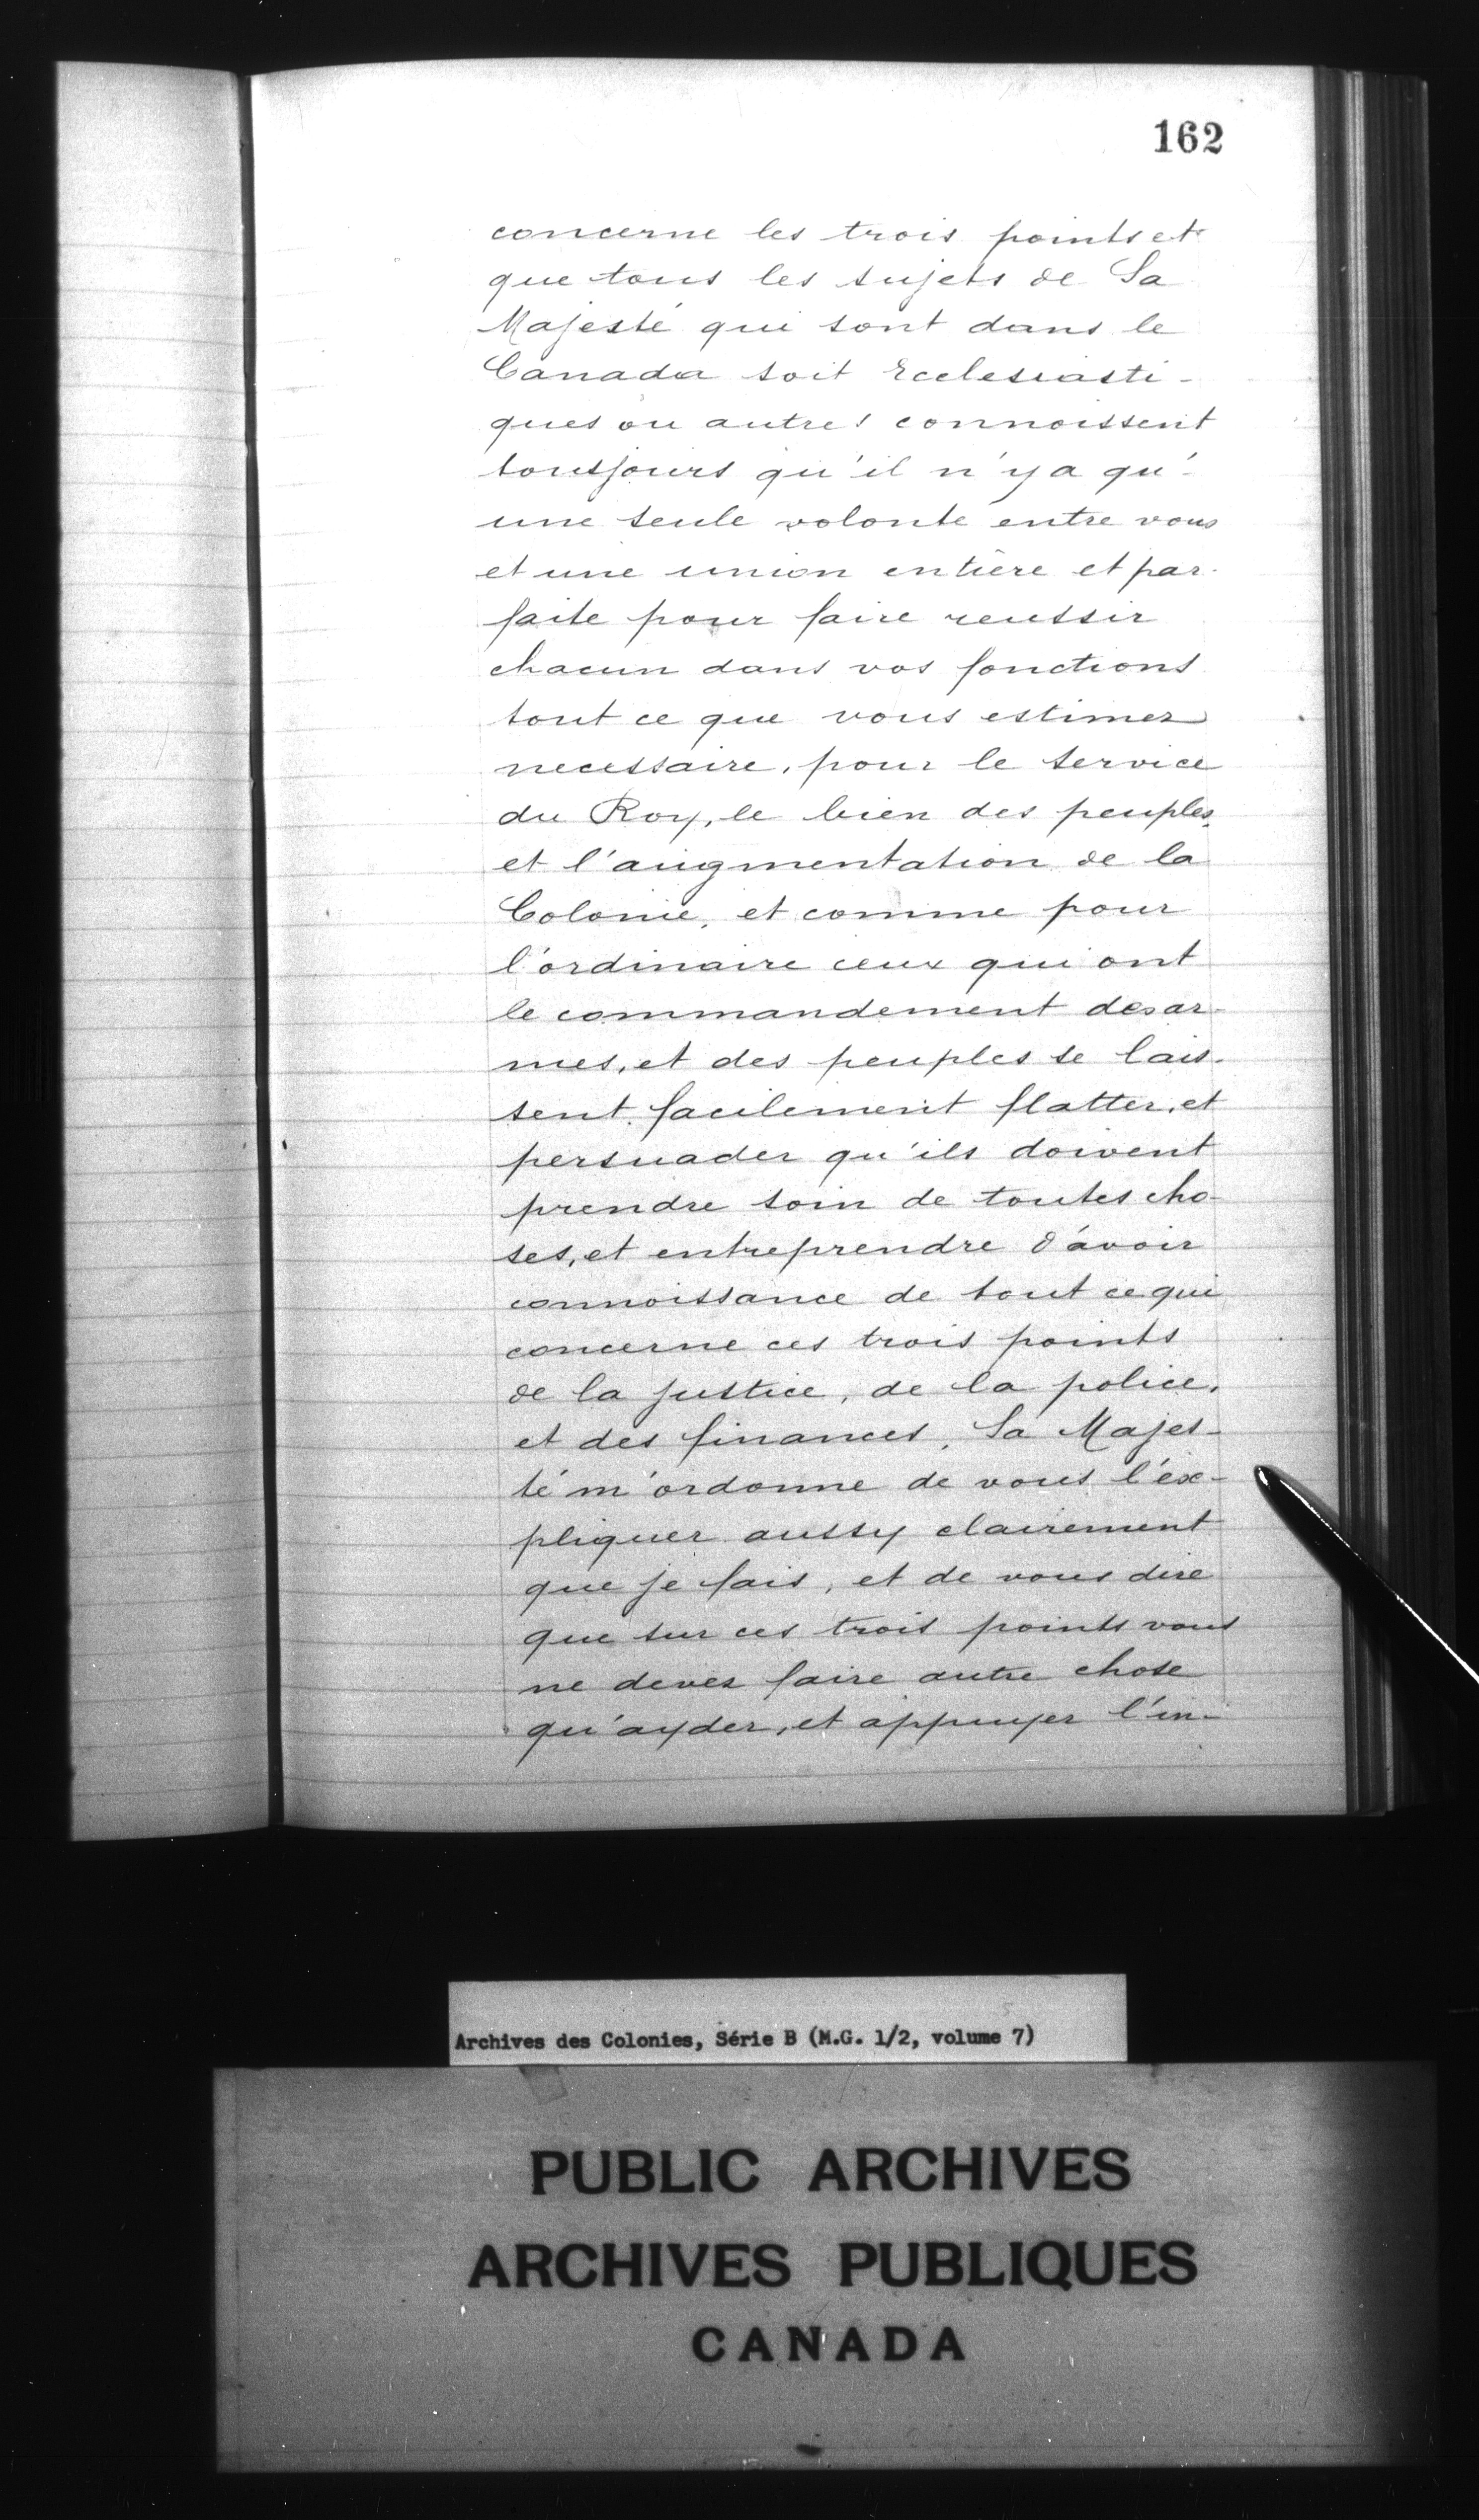 162
concerne les trois points et
que tous les sujets de Sa
Majesté qui sont dans le
Canada soit Ecclesiasti-
ques ou autres connoissent
tousjours qu'il n'y a qu'
une seule volonté entre vous
et une union entière et par-
faite pour faire reussir
chacun dans vos fonctions
tout ce que vous estimez
necessaire, pour le service
du Roy, le bien des peuples,
et l'augmentation de la
Colonie, et comme pour
l'ordinaire ceux qui ont
le commandement des ar-
mes, et des peuples se lais-
sent facilement flatter, et
persuader qu'ils doivent
prendre soin de toutes cho-
ses, et entreprendre d'avoir
connoissance de tout ce qui
concerne ces trois points
de la justice, de la police,
et des finances, Sa Majes-
té m'ordonne de vous l'ex-
pliquer aussy clairement
que je fais, et de vous dire
que sur ces trois points vous
ne devez faire autre chose
qu'ayder, et appuyer l'in-
Archives des Colonies, Série B (M.G. 1/2, volume 7)
PUBLIC ARCHIVES
ARCHIVES PUBLIQUES
CANADA